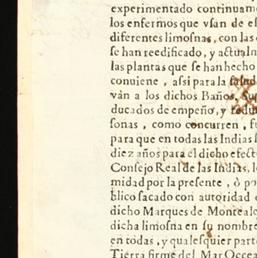 experimentado continuam
los enfermos que vſan de eſ
diferentes limoſnas, con las
ſe han reedificado, y actualm
las plantas que ſe han hecho
conuiene, aſsi para la ſalud
ván a los dichos Baños. Su
ducados de empeño, y redu
ſonas, como concurren, fu
para que en todas las Indias
diez años para el dicho efect
Conſejo Real de las Indias, lo
midad por la preſente, ò po
blico ſacado con autoridad
dicho Marques de Monteale
dicha limoſna en ſu nombre
en todas, y qualeſquier part
Tierra firme del Mar Occea